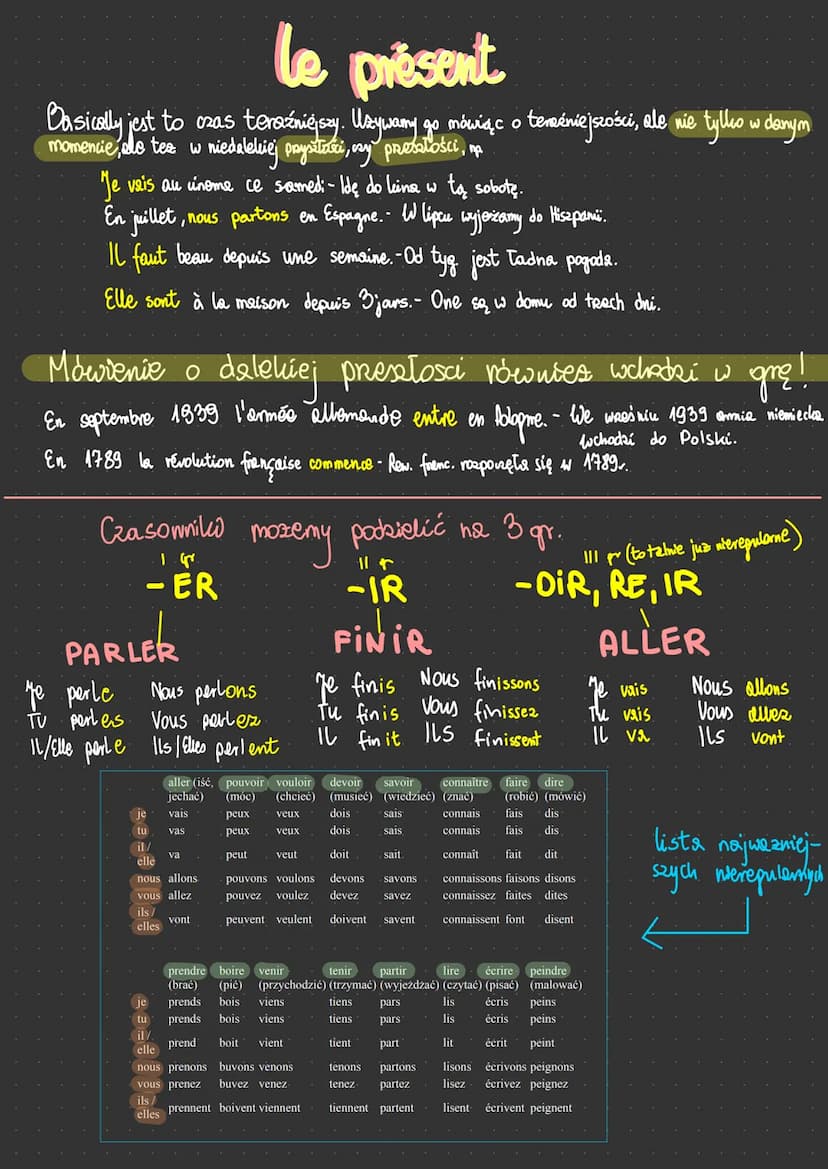 le présent
Basically jest to czas teraźniejszy. Używamy go mówiąc o teraźniejszości, ale nie tylko w danym
momencie, ale też w niedalekiej przyszłości, czy przeszłości, np
Je vais au cinema ce samedi - Idę do kina w tą sobotę.
En juillet, nous partons en Espagne. - W lipcu wyjeżamy do Hiszpanii.
Il faut beau depuis une semaine. - Od tyg. jest ładna pogoda.
Elle sont à la maison depuis 3 jars. - One są w domu od trzech dni.
Mówienie o dalekiej przeszłosci również wchodzi w grę!
En septembre 1939 l'armée allemande entre en Pologne. - We wrześniu 1939 armia niemiecka
wchodzi do Polski.
En 1789 la révolution française commence - Rew. franc. rozpoczęła się w 1789r.
Czasowniki możemy podzielić na 3 gr.
I gr II gr III gr (totalnie już nieregularne)
-ER -IR -OIR, RE, IR
PARLER FINIR ALLER
Je parle Nous parlons Je finis Nous finissons Je vais Nous allons
Tu parles Vous parlez Tu finis Vous finissez Tu vais Vous allez
Il/Elle parle Ils/Elles parlent Il finit Ils finissent Il va Ils vont
aller (iść, pouvoir vouloir devoir savoir connaître faire dire
jechać) (móc) (chcieć) (musieć) (wiedzieć) (znać) (robić) (mówić)
je vais peux veux dois sais connais fais dis
tu vas peux veux dois sais connais fais dis
il / elle va peut veut doit sait connaît fait dit
nous allons pouvons voulons devons savons connaissons faisons disons
vous allez pouvez voulez devez savez connaissez faites dites
ils / elles vont peuvent veulent doivent savent connaissent font disent
lista najważniej-
szych nieregularnych
prendre boire venir tenir partir lire écrire peindre
(brać) (pić) (przychodzić) (trzymać) (wyjeżdżać) (czytać) (pisać) (malować)
je prends bois viens tiens pars lis écris peins
tu prends bois viens tiens pars lis écris peins
il / elle prend boit vient tient part lit écrit peint
nous prenons buvons venons tenons partons lisons écrivons peignons
vous prenez buvez venez tenez partez lisez écrivez peignez
ils / elles prennent boivent viennent tiennent partent lisent écrivent peignent